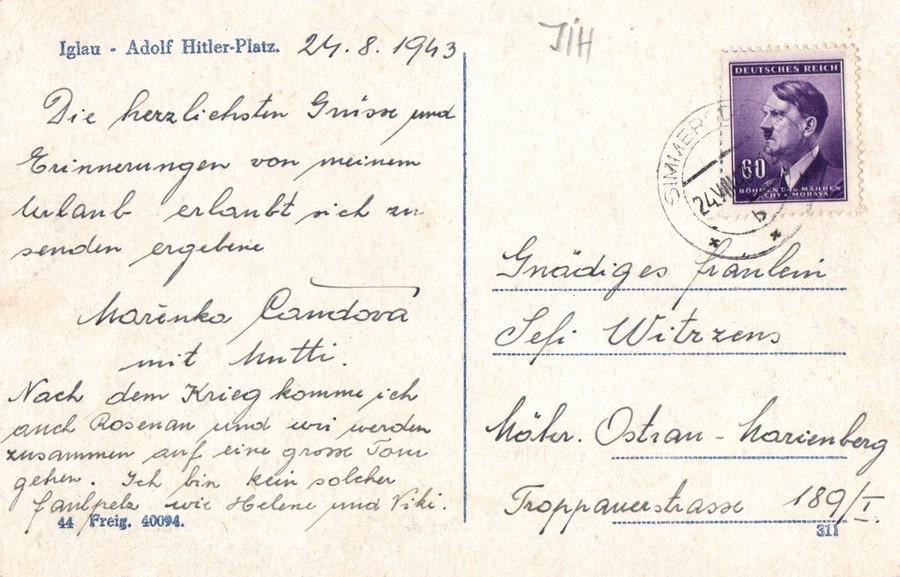 Iglau - Adolf Hitler-Platz. 24. 8. 1943
Die herzlichsten Grüsse und
Erinnerungen von meinem
Urlaub erlaubt sich zu
senden ergebene
Mařenka Čandová
mit Mutti.
Nach dem Krieg komme ich
auch Rosenau und wir werden
zusammen auf eine grosse Tour
gehen. Ich bin kein solcher
faulpelz wie Helene und Viki.
44 Freig. 40094.
JIH
DEUTSCHES REICH
60
BÖHMEN UND MÄHREN
ČECHY A MORAVA
SIMMER
24.VIII
b
Gnädiges fräulein
Sefi Witrzens
Mähr. Ostrau - Marienberg
Troppauerstrasse 189/I.
311